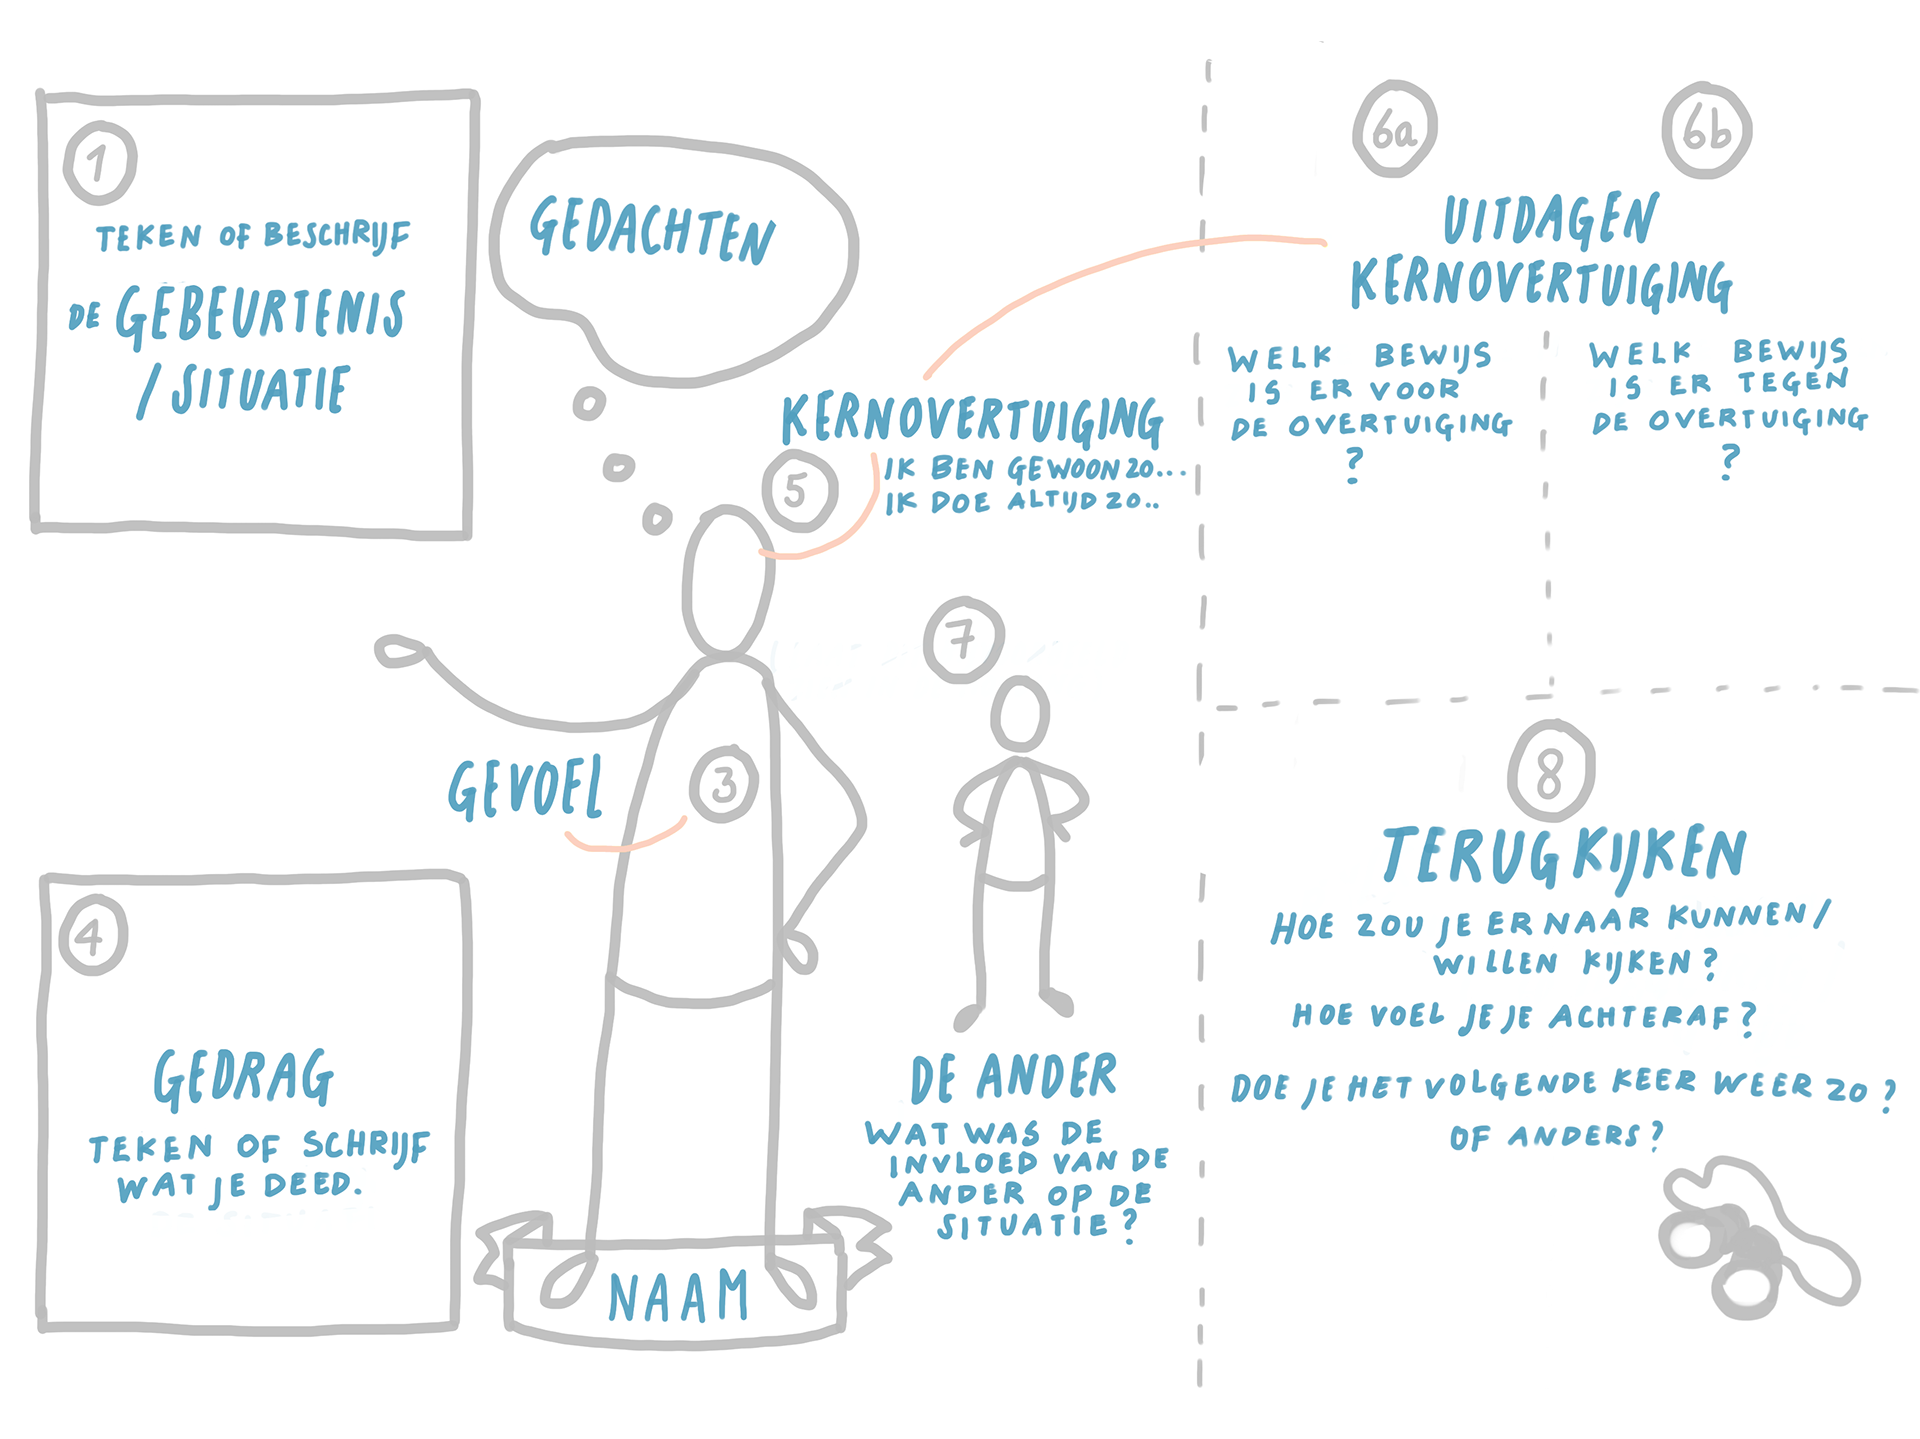 1
TEKEN OF BESCHRIJF
DE GEBEURTENIS
/ SITUATIE
GEDACHTEN
KERNOVERTUIGING
5
IK BEN GEWOON ZO...
IK DOE ALTIJD ZO..
GEVOEL
3
4
GEDRAG
TEKEN OF SCHRIJF
WAT JE DEED.
NAAM
7
DE ANDER
WAT WAS DE
INVLOED VAN DE
ANDER OP DE
SITUATIE?
6a
6b
UITDAGEN
KERNOVERTUIGING
WELK BEWIJS
IS ER VOOR
DE OVERTUIGING
?
WELK BEWIJS
IS ER TEGEN
DE OVERTUIGING
?
8
TERUGKIJKEN
HOE ZOU JE ER NAAR KUNNEN/
WILLEN KIJKEN?
HOE VOEL JE JE ACHTERAF?
DOE JE HET VOLGENDE KEER WEER ZO?
OF ANDERS?